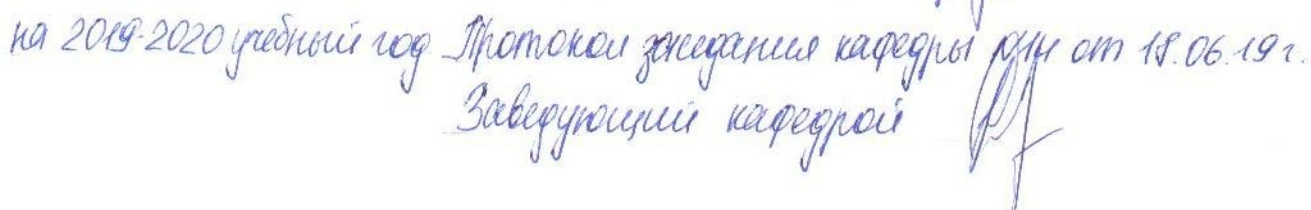 на 2019-2020 учебный год Протокол заседания кафедры от 18.06.19 г.
Заведующий кафедрой